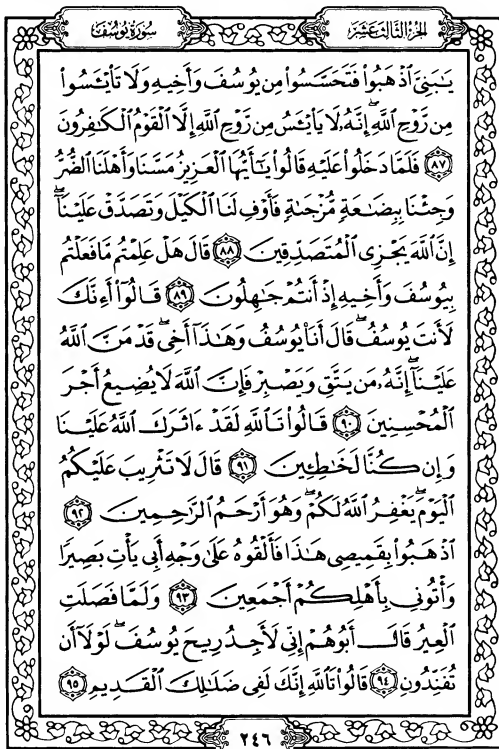 الجزء الثالث عشر
سورة يوسف
يَـٰبَنِىَّ ٱذْهَبُوا۟ فَتَحَسَّسُوا۟ مِن يُوسُفَ وَأَخِيهِ وَلَا تَا۟يْـَٔسُوا۟
مِن رَّوْحِ ٱللَّهِ ۖ إِنَّهُۥ لَا يَا۟يْـَٔسُ مِن رَّوْحِ ٱللَّهِ إِلَّا ٱلْقَوْمُ ٱلْكَـٰفِرُونَ
٨٧ فَلَمَّا دَخَلُوا۟ عَلَيْهِ قَالُوا۟ يَـٰٓأَيُّهَا ٱلْعَزِيزُ مَسَّنَا وَأَهْلَنَا ٱلضُّرُّ
وَجِئْنَا بِبِضَـٰعَةٍ مُّزْجَىٰةٍ فَأَوْفِ لَنَا ٱلْكَيْلَ وَتَصَدَّقْ عَلَيْنَآ ۖ
إِنَّ ٱللَّهَ يَجْزِى ٱلْمُتَصَدِّقِينَ ٨٨ قَالَ هَلْ عَلِمْتُم مَّا فَعَلْتُم
بِيُوسُفَ وَأَخِيهِ إِذْ أَنتُمْ جَـٰهِلُونَ ٨٩ قَالُوٓا۟ أَءِنَّكَ
لَأَنتَ يُوسُفُ ۖ قَالَ أَنَا۠ يُوسُفُ وَهَـٰذَآ أَخِى ۖ قَدْ مَنَّ ٱللَّهُ
عَلَيْنَآ ۖ إِنَّهُۥ مَن يَتَّقِ وَيَصْبِرْ فَإِنَّ ٱللَّهَ لَا يُضِيعُ أَجْرَ
ٱلْمُحْسِنِينَ ٩٠ قَالُوا۟ تَٱللَّهِ لَقَدْ ءَاثَرَكَ ٱللَّهُ عَلَيْنَا
وَإِن كُنَّا لَخَـٰطِـِٔينَ ٩١ قَالَ لَا تَثْرِيبَ عَلَيْكُمُ
ٱلْيَوْمَ ۖ يَغْفِرُ ٱللَّهُ لَكُمْ ۖ وَهُوَ أَرْحَمُ ٱلرَّٰحِمِينَ ٩٢
ٱذْهَبُوا۟ بِقَمِيصِى هَـٰذَا فَأَلْقُوهُ عَلَىٰ وَجْهِ أَبِى يَأْتِ بَصِيرًا
وَأْتُونِى بِأَهْلِكُمْ أَجْمَعِينَ ٩٣ وَلَمَّا فَصَلَتِ
ٱلْعِيرُ قَالَ أَبُوهُمْ إِنِّى لَأَجِدُ رِيحَ يُوسُفَ ۖ لَوْلَآ أَن
تُفَنِّدُونِ ٩٤ قَالُوا۟ تَٱللَّهِ إِنَّكَ لَفِى ضَلَـٰلِكَ ٱلْقَدِيمِ ٩٥
٢٤٦